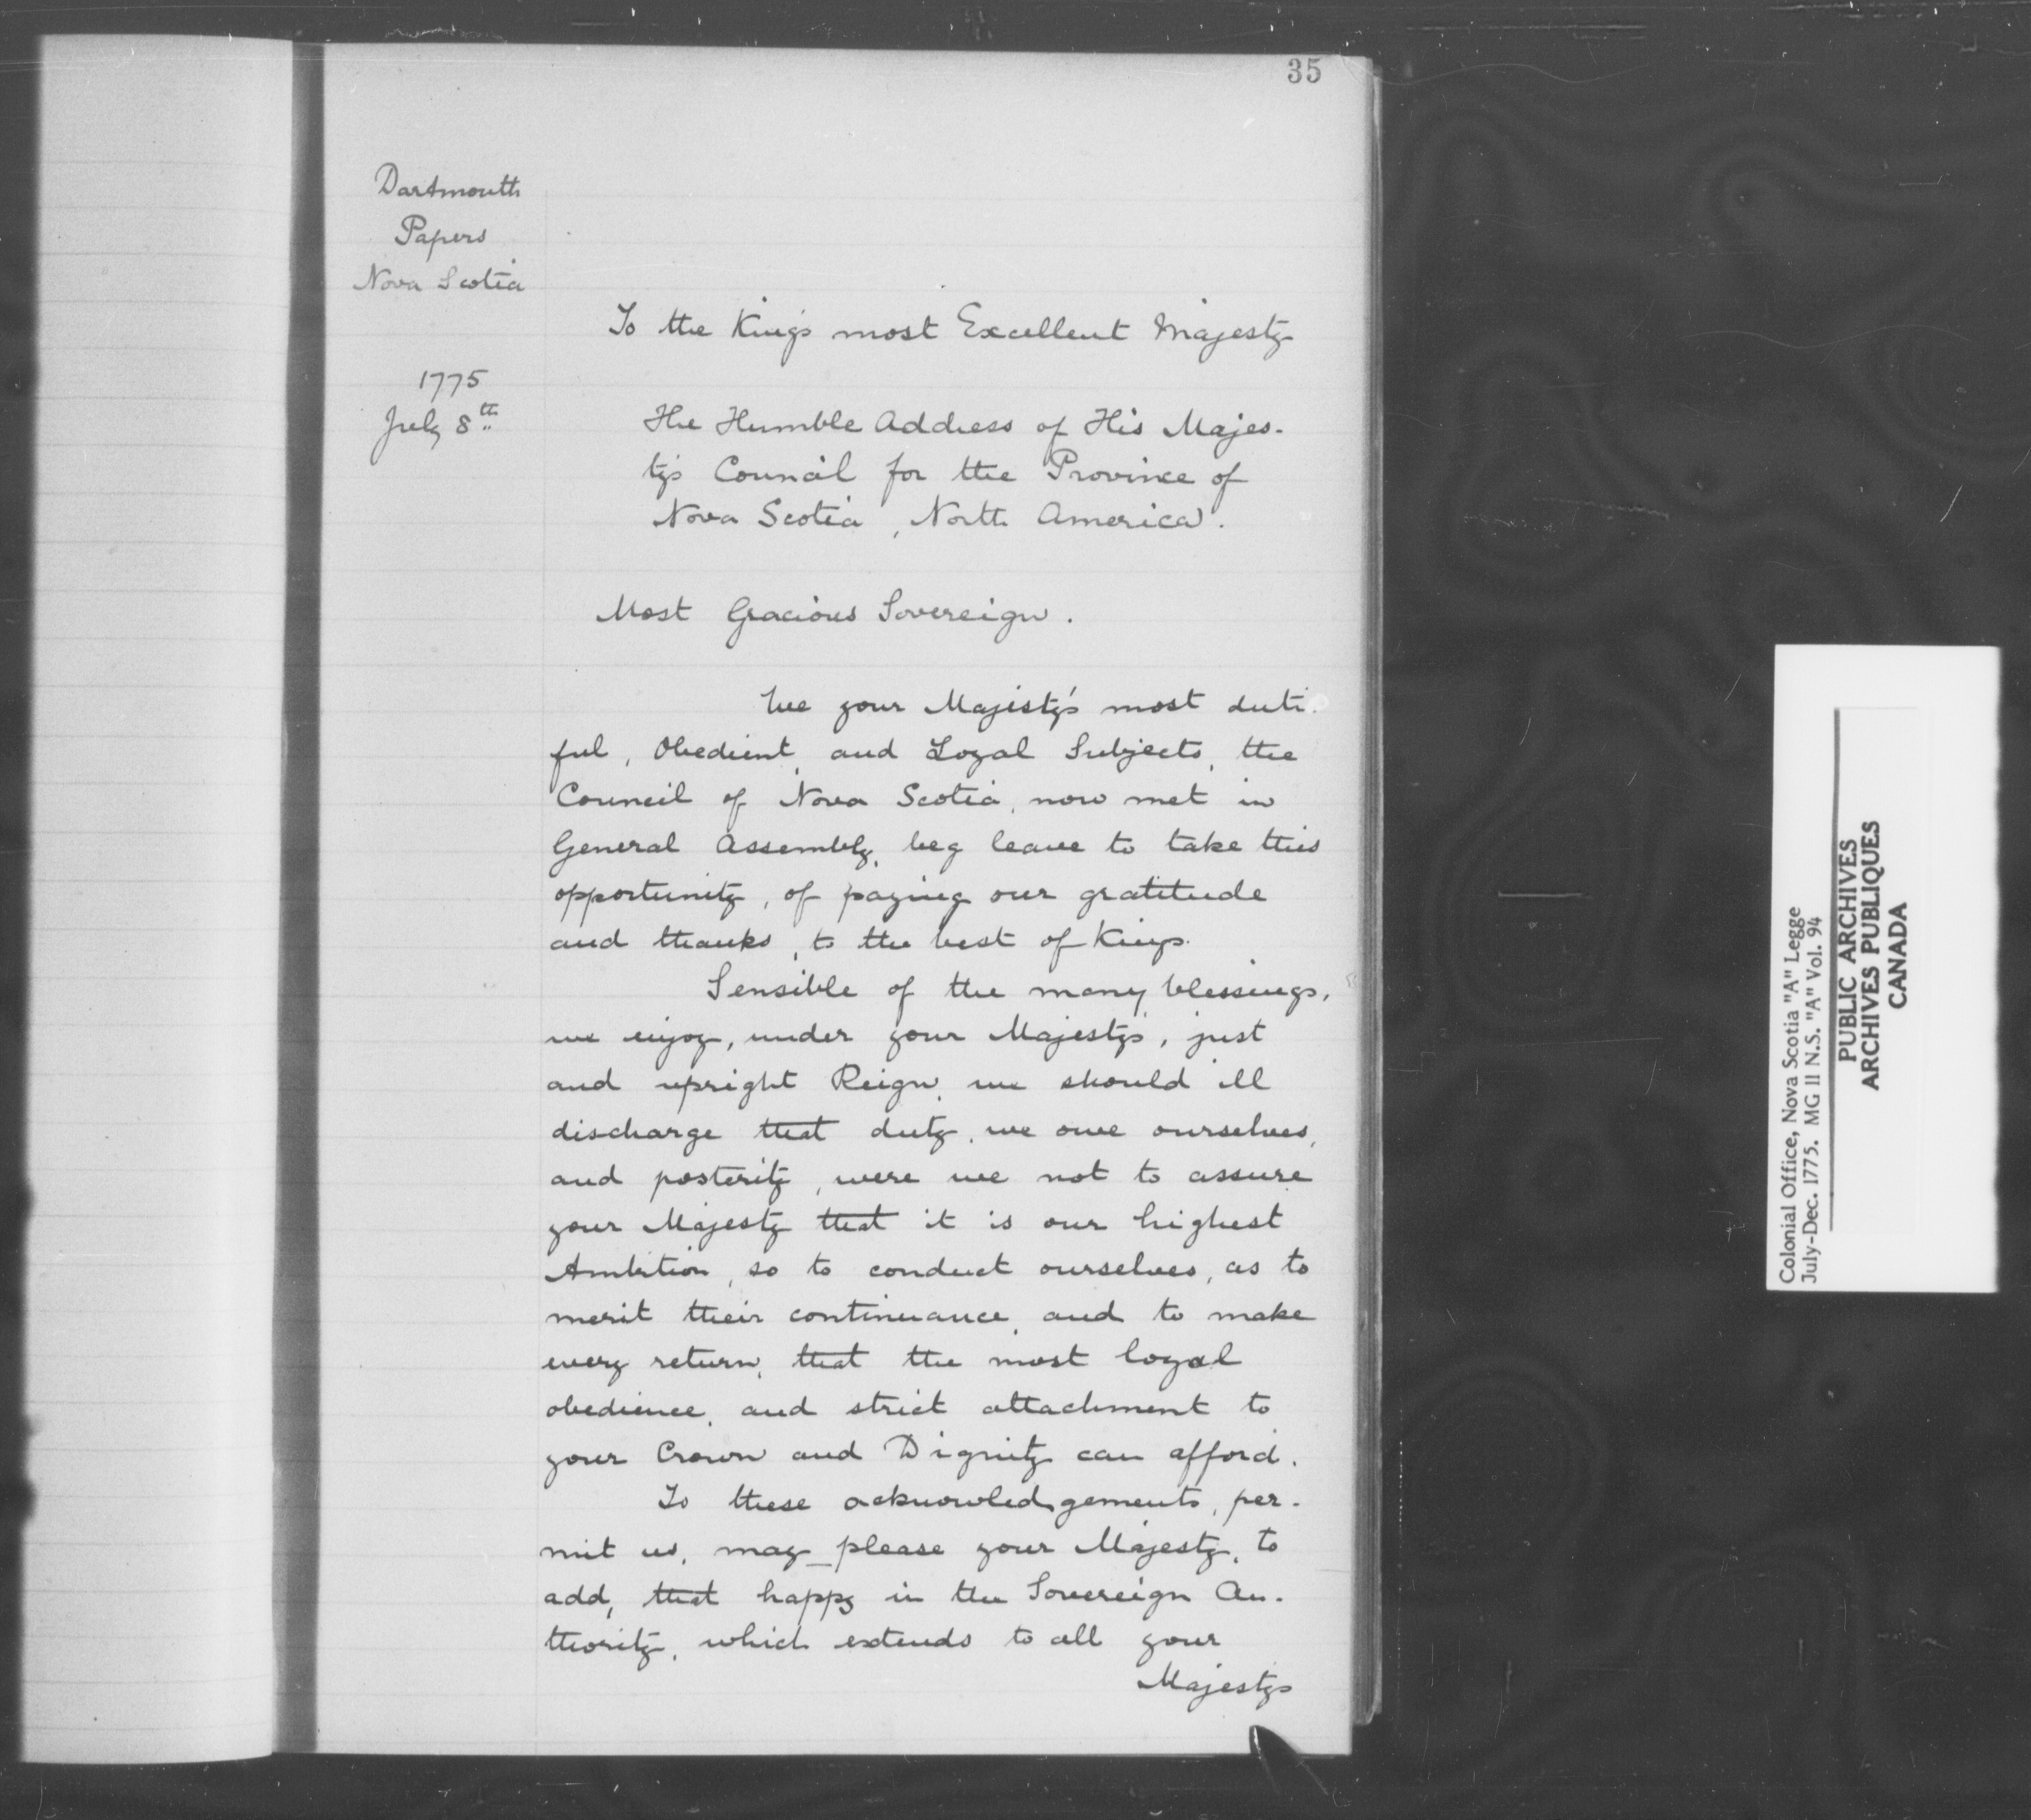 35
Dartmouth
Papers
Nova Scotia
1775
July 8th
To the King's most Excellent Majesty
The Humble Address of His Majes-
ty's Council for the Province of
Nova Scotia, North America.
Most Gracious Sovereign.
We your Majesty's most duti-
ful, Obedient, and Loyal Subjects, the
Council of Nova Scotia, now met in
General Assembly, beg leave to take this
opportunity, of paying our gratitude
and thanks, to the best of Kings.
Sensible of the many blessings,
we enjoy, under your Majesty's, just
and upright Reign, we should ill
discharge that duty, we owe ourselves,
and posterity, were we not to assure
your Majesty that it is our highest
Ambition, so to conduct ourselves, as to
merit their continuance, and to make
every return, that the most loyal
obedience, and strict attachment to
your Crown and Dignity can afford.
To these acknowledgements, per-
mit us, may please your Majesty, to
add, that happy in the Sovereign Au-
thority, which extends to all your
Majestys
Colonial Office, Nova Scotia "A" Legge
July-Dec. 1775. MG 11 N.S. "A" Vol. 94
PUBLIC ARCHIVES
ARCHIVES PUBLIQUES
CANADA